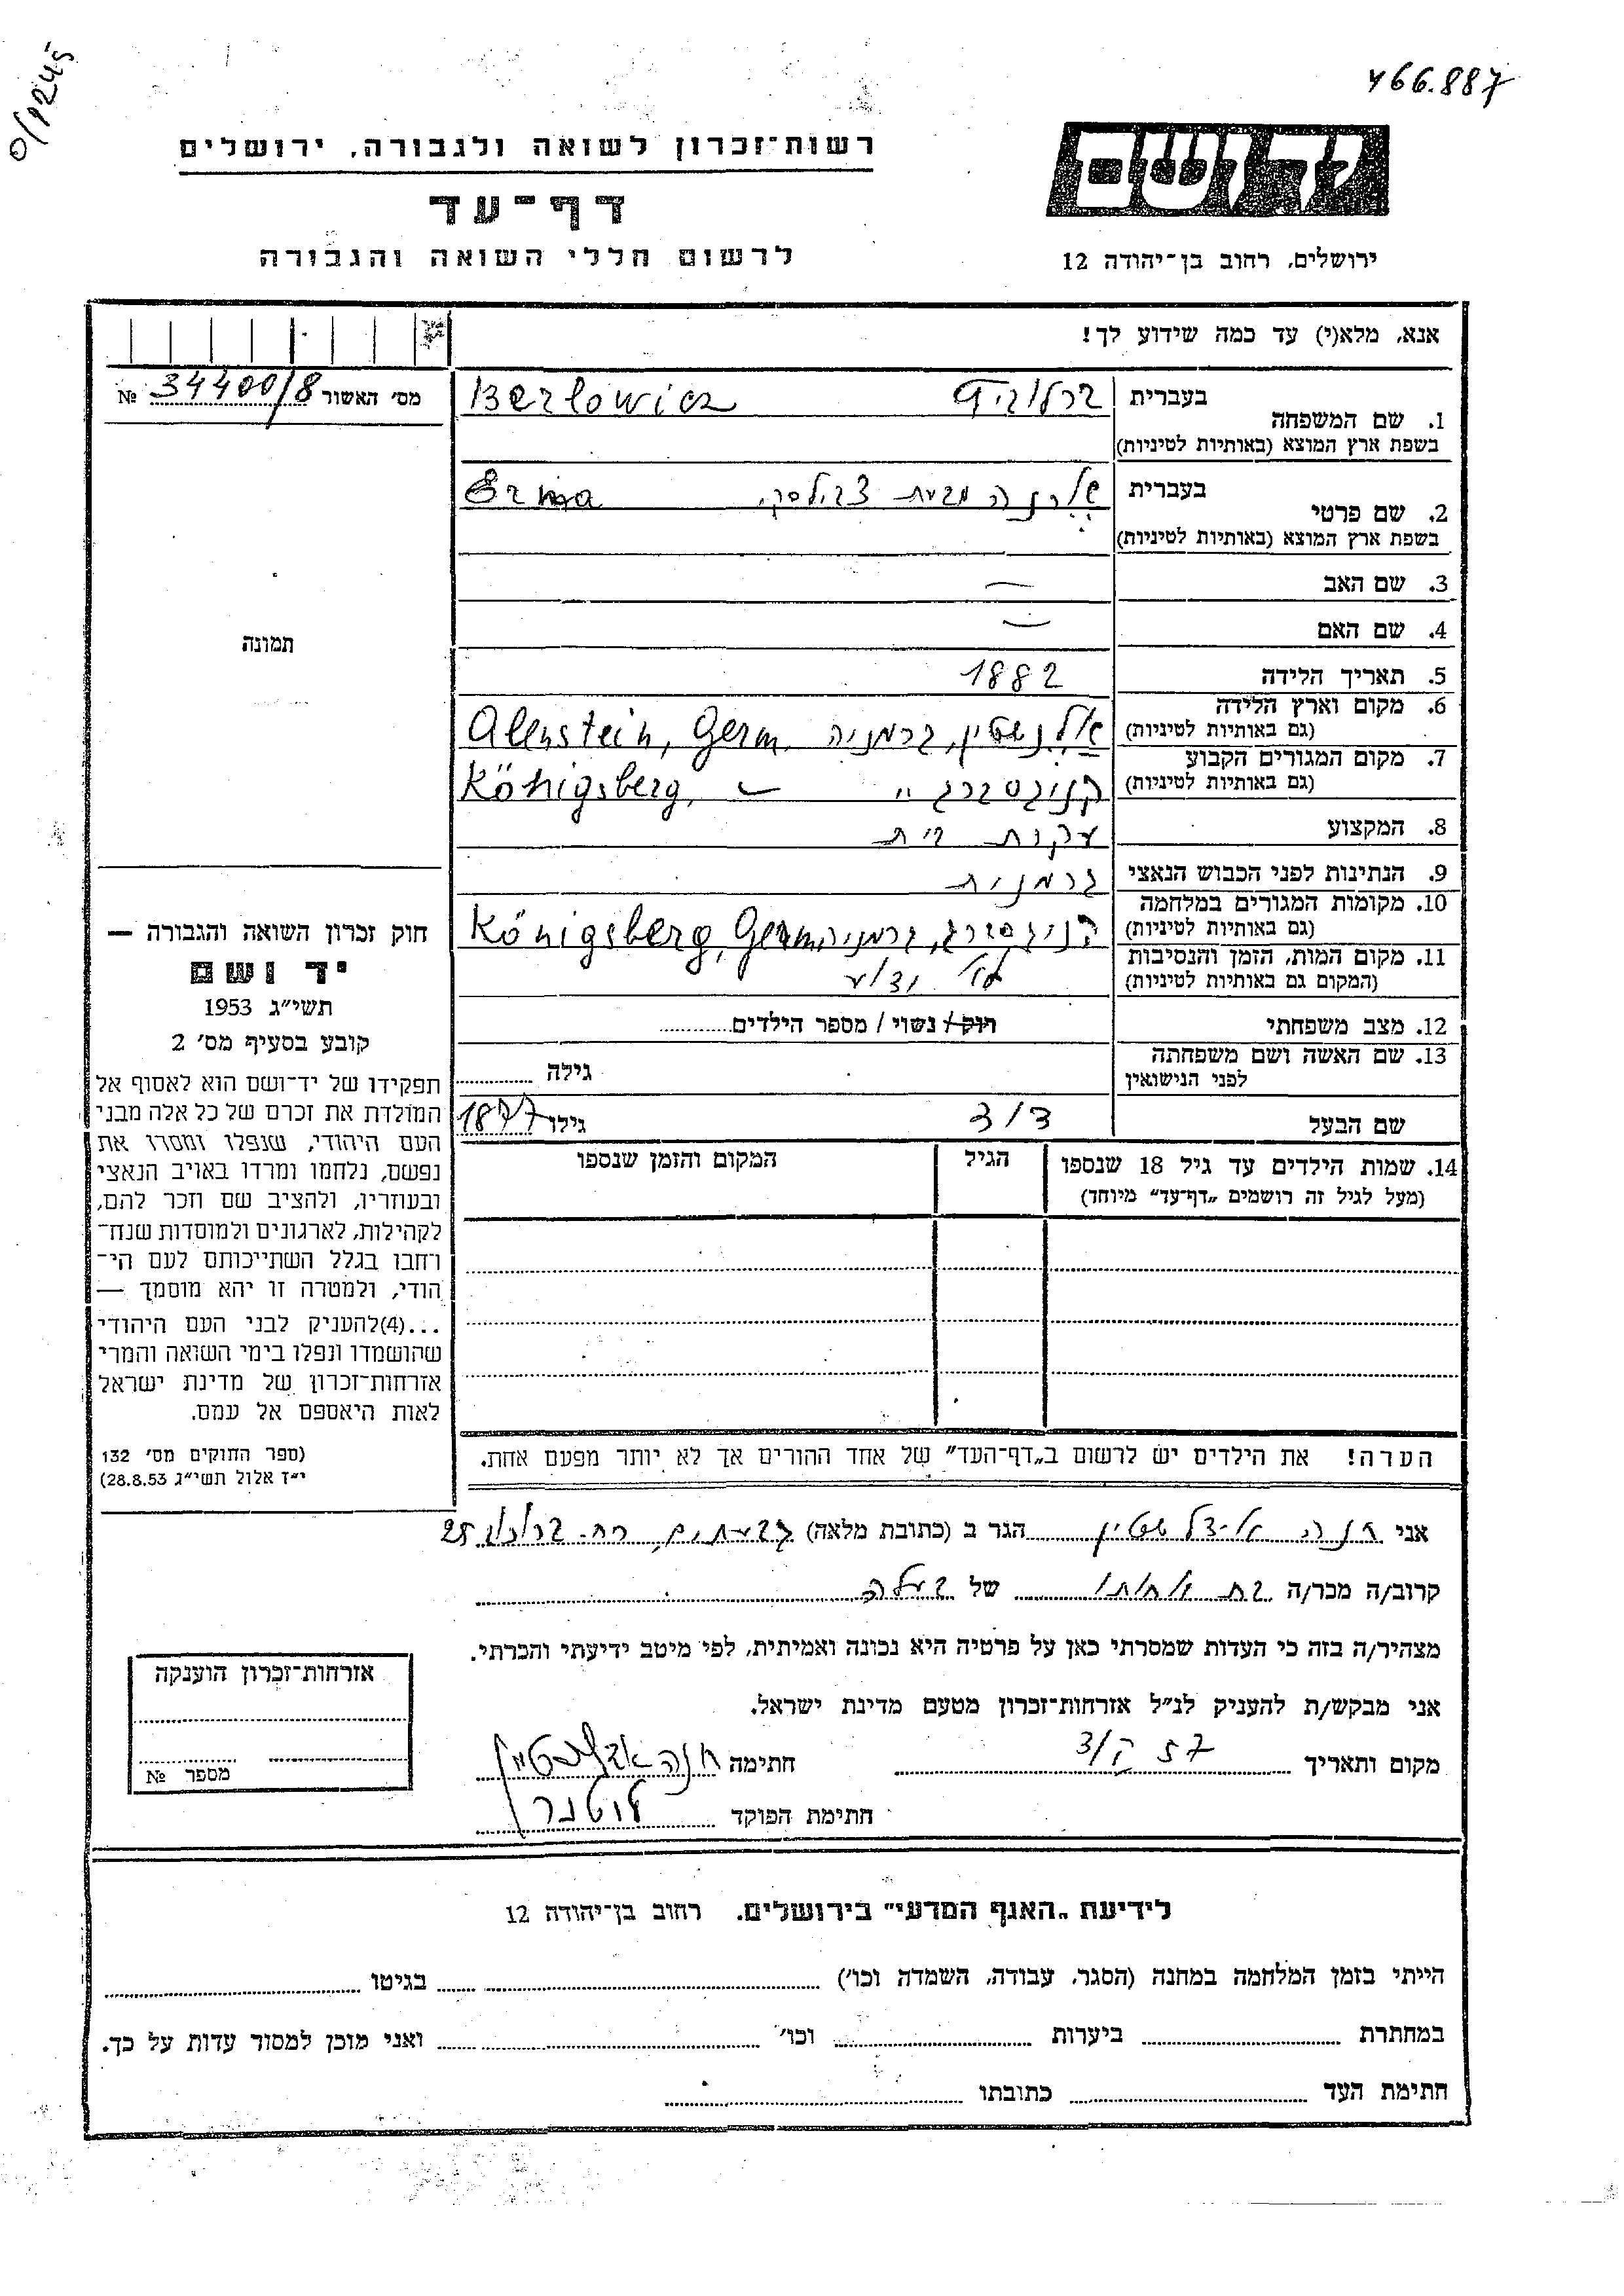 466.887
יד ושם
רשות־זכרון לשואה ולגבורה, ירושלים
דף־עד
לרשום חללי השואה והגבורה
ירושלים, רחוב בן־יהודה 12
אנא, מלא(י) עד כמה שידוע לך!
מס׳ האשור 34400/8 №
1. שם המשפחה
בעברית ברלוביץ Berlowicz
בשפת ארץ המוצא (באותיות לטיניות)
2. שם פרטי
בעברית ארנה מבית Erna
בשפת ארץ המוצא (באותיות לטיניות)
3. שם האב —
4. שם האם —
תמונה
5. תאריך הלידה 1882
6. מקום וארץ הלידה
(גם באותיות לטיניות) אלנשטין, גרמניה Alenstein, Germ.
7. מקום המגורים הקבוע
(גם באותיות לטיניות) קניגסברג " Königsberg,
8. המקצוע עקרת בית
9. הנתינות לפני הכבוש הנאצי גרמנית
10. מקומות המגורים במלחמה
(גם באותיות לטיניות) קניגסברג, גרמניה Königsberg, Germ
11. מקום המות, הזמן והנסיבות
(המקום גם באותיות לטיניות) לא ידוע
12. מצב משפחתי רוק / נשוי / מספר הילדים
13. שם האשה ושם משפחתה
לפני הנישואין גילה
שם הבעל דוד גילו 1877
14. שמות הילדים עד גיל 18 שנספו
(מעל לגיל זה רושמים „דף־עד” מיוחד)
הגיל
המקום והזמן שנספו
הערה! את הילדים יש לרשום ב„דף־העד” של אחד ההורים אך לא יותר מפעם אחת.
חוק זכרון השואה והגבורה —
יד ושם
תשי״ג 1953
קובע בסעיף מס׳ 2
תפקידו של יד־ושם הוא לאסוף אל
המולדת את זכרם של כל אלה מבני
העם היהודי, שנפלו ומסרו את
נפשם, נלחמו ומרדו באויב הנאצי
ובעוזריו, ולהציב שם וזכר להם,
לקהילות, לארגונים ולמוסדות שנח־
רחבו בגלל השתייכותם לעם הי־
הודי, ולמטרה זו יהא מוסמך —
...(4)להעניק לבני העם היהודי
שהושמדו ונפלו בימי השואה והמרי
אזרחות־זכרון של מדינת ישראל
לאות היאספם אל עמם.
(ספר החוקים מס׳ 132
י״ז אלול תשי״ג 28.8.53)
אני חנה אידלשטין הגר ב (כתובת מלאה) גבעתים, רח. 25
קרוב/ה מכר/ה בת אחותו של בעלה
מצהיר/ה בזה כי העדות שמסרתי כאן על פרטיה היא נכונה ואמיתית, לפי מיטב ידיעתי והכרתי.
אני מבקש/ת להעניק לנ״ל אזרחות־זכרון מטעם מדינת ישראל.
מקום ותאריך חתימה חנה
חתימת הפוקד
אזרחות־זכרון הוענקה
מספר №
לידיעת „האגף המדעי” בירושלים. רחוב בן־יהודה 12
הייתי בזמן המלחמה במחנה (הסגר, עבודה, השמדה וכו׳) בגיטו
במחתרת ביערות וכו׳ ואני מוכן למסור עדות על כך.
חתימת העד כתובתו